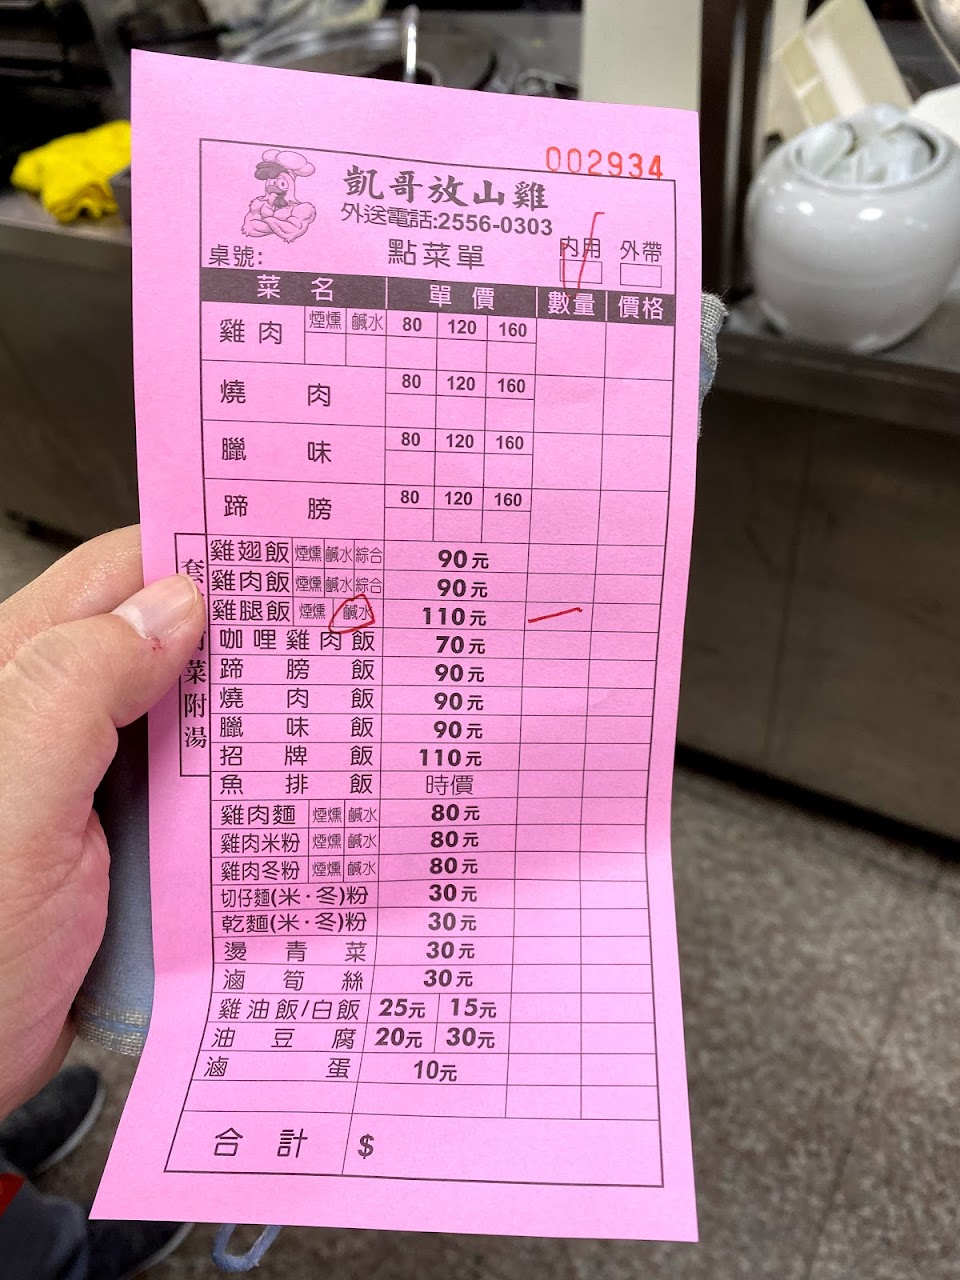 002934
凱哥放山雞
外送電話:2556-0303
桌號: 點菜單 內用 外帶
菜名 單價 數量 價格
雞肉 煙燻 鹹水 80 120 160
燒肉 80 120 160
臘味 80 120 160
蹄膀 80 120 160
套 菜附湯
雞翅飯 煙燻 鹹水 綜合 90元
雞肉飯 煙燻 鹹水 綜合 90元
雞腿飯 煙燻 鹹水 110元
咖哩雞肉飯 70元
蹄膀飯 90元
燒肉飯 90元
臘味飯 90元
招牌飯 110元
魚排飯 時價
雞肉麵 煙燻 鹹水 80元
雞肉米粉 煙燻 鹹水 80元
雞肉冬粉 煙燻 鹹水 80元
切仔麵(米·冬)粉 30元
乾麵(米·冬)粉 30元
燙青菜 30元
滷筍絲 30元
雞油飯/白飯 25元 15元
油豆腐 20元 30元
滷蛋 10元
合計 $